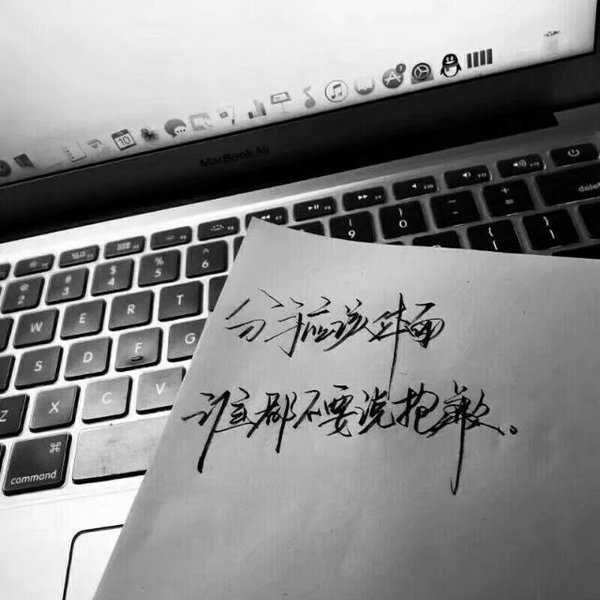 10
MacBook Air
delete
@ 2
# 3
$ 4
% 5
^ 6
( 9
) 0
- 
+ =
W E R T
S D F G
Z X C V
⌘
command
分手应该体面
谁都不要说抱歉。